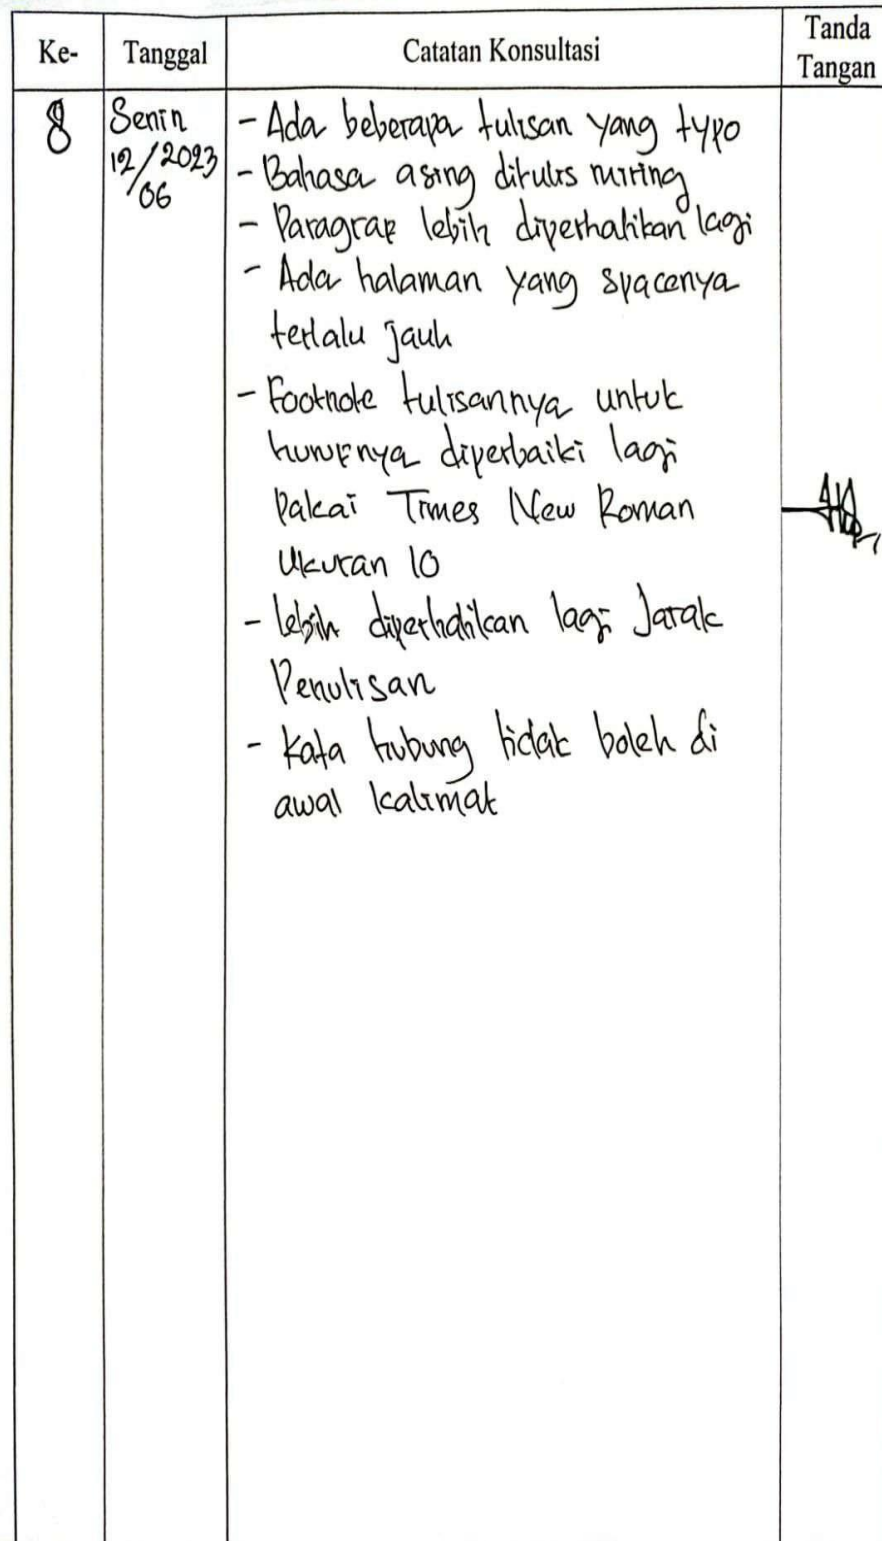 Ke- Tanggal Catatan Konsultasi Tanda Tangan
8 Senin 12/06 2023
- Ada beberapa tulisan yang typo
- Bahasa asing ditulis miring
- Paragraf lebih diperhatikan lagi
- Ada halaman yang spacenya
terlalu jauh
- Footnote tulisannya untuk
hurufnya diperbaiki lagi
Pakai Times New Roman
Ukuran 10
- lebih diperhatikan lagi Jarak
Penulisan
- Kata hubung tidak boleh di
awal kalimat